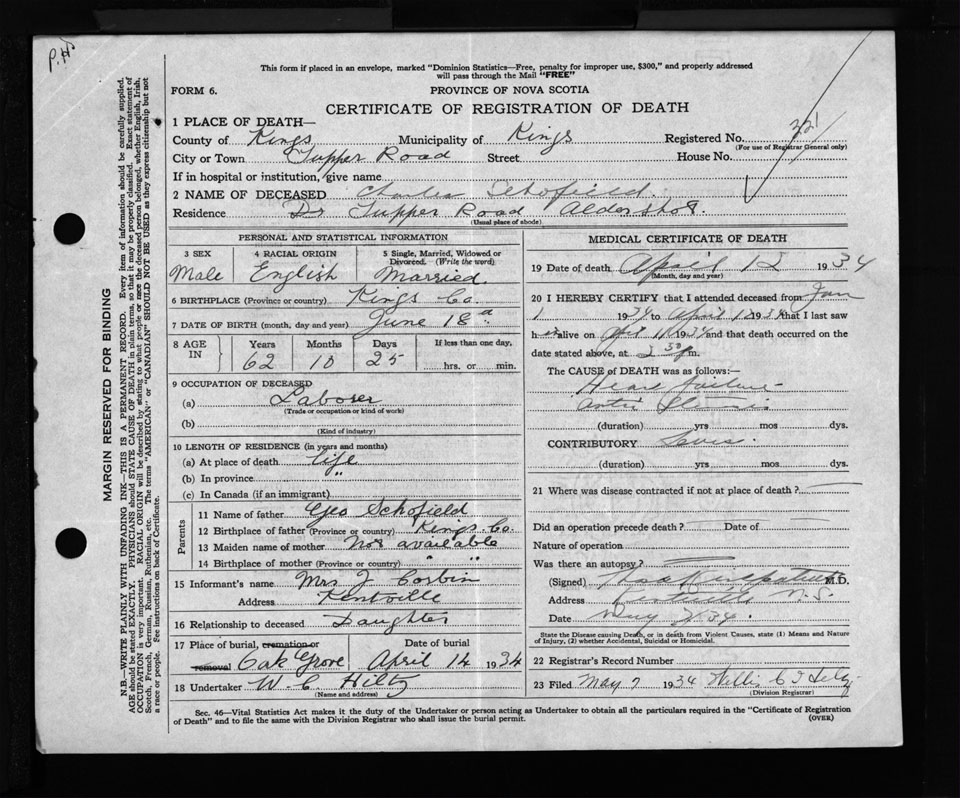 P.H
This form if placed in an envelope, marked "Dominion Statistics—Free, penalty for improper use, $300," and properly addressed
will pass through the Mail "FREE"
FORM 6.
PROVINCE OF NOVA SCOTIA
CERTIFICATE OF REGISTRATION OF DEATH
1 PLACE OF DEATH—
County of Kings Municipality of Kings Registered No. 321
(For use of Registrar General only)
City or Town Tupper Road Street House No.
If in hospital or institution, give name
2 NAME OF DECEASED Charles Schofield
Residence Dr Tupper Road Aldershot.
(Usual place of abode)
PERSONAL AND STATISTICAL INFORMATION
3 SEX 4 RACIAL ORIGIN 5 Single, Married, Widowed or
Divorced. (Write the word)
Male English Married.
6 BIRTHPLACE (Province or country) Kings Co.
7 DATE OF BIRTH (month, day and year) June 18
8 AGE IN Years Months Days If less than one day,
62 10 25 hrs. or min.
9 OCCUPATION OF DECEASED
(a) Laborer
(Trade or occupation or kind of work)
(b)
(Kind of industry)
10 LENGTH OF RESIDENCE (in years and months)
(a) At place of death life
(b) In province "
(c) In Canada (if an immigrant)
Parents
11 Name of father Geo Schofield
12 Birthplace of father (Province or country) Kings Co.
13 Maiden name of mother Not available
14 Birthplace of mother (Province or country) " "
15 Informant's name Mrs J Corbin
Address Kentville
16 Relationship to deceased Daughter
17 Place of burial, cremation or Date of burial
removal Oak Grove April 14 1934
18 Undertaker W. C. Hiltz
(Name and address)
MEDICAL CERTIFICATE OF DEATH
19 Date of death April 12 1934
(Month, day and year)
20 I HEREBY CERTIFY that I attended deceased from Jan
1 1934 to April 12 1934 that I last saw
h alive on April 11 1934 and that death occurred on the
date stated above, at 2 30 p m.
The CAUSE of DEATH was as follows:—
Heart failure
(duration) yrs mos dys.
CONTRIBUTORY
(duration) yrs mos dys.
21 Where was disease contracted if not at place of death?
Did an operation precede death? Date of
Nature of operation
Was there an autopsy?
(Signed) M.D.
Address Kentville N.S.
Date May 34.
State the Disease causing Death, or in death from Violent Causes, state (1) Means and Nature
of Injury, (2) whether Accidental, Suicidal or Homicidal.
22 Registrar's Record Number
23 Filed May 7 1934
(Division Registrar)
Sec. 46—Vital Statistics Act makes it the duty of the Undertaker or person acting as Undertaker to obtain all the particulars required in the "Certificate of Registration
of Death" and to file the same with the Division Registrar who shall issue the burial permit.
(OVER)
MARGIN RESERVED FOR BINDING
N.B.—WRITE PLAINLY WITH UNFADING INK—THIS IS A PERMANENT RECORD. Every item of information should be carefully supplied.
AGE should be stated EXACTLY. PHYSICIANS should STATE CAUSE OF DEATH in plain terms, so that it may be properly classified. Exact statement of
OCCUPATION is very important. RACIAL ORIGIN will be described by stating to what people or race the deceased person belonged, whether English, Irish,
Scotch, French, German, Russian, Ruthenian, etc. The terms "AMERICAN" or "CANADIAN" SHOULD NOT BE USED as they express citizenship but not
a race or people. See instructions on back of Certificate.